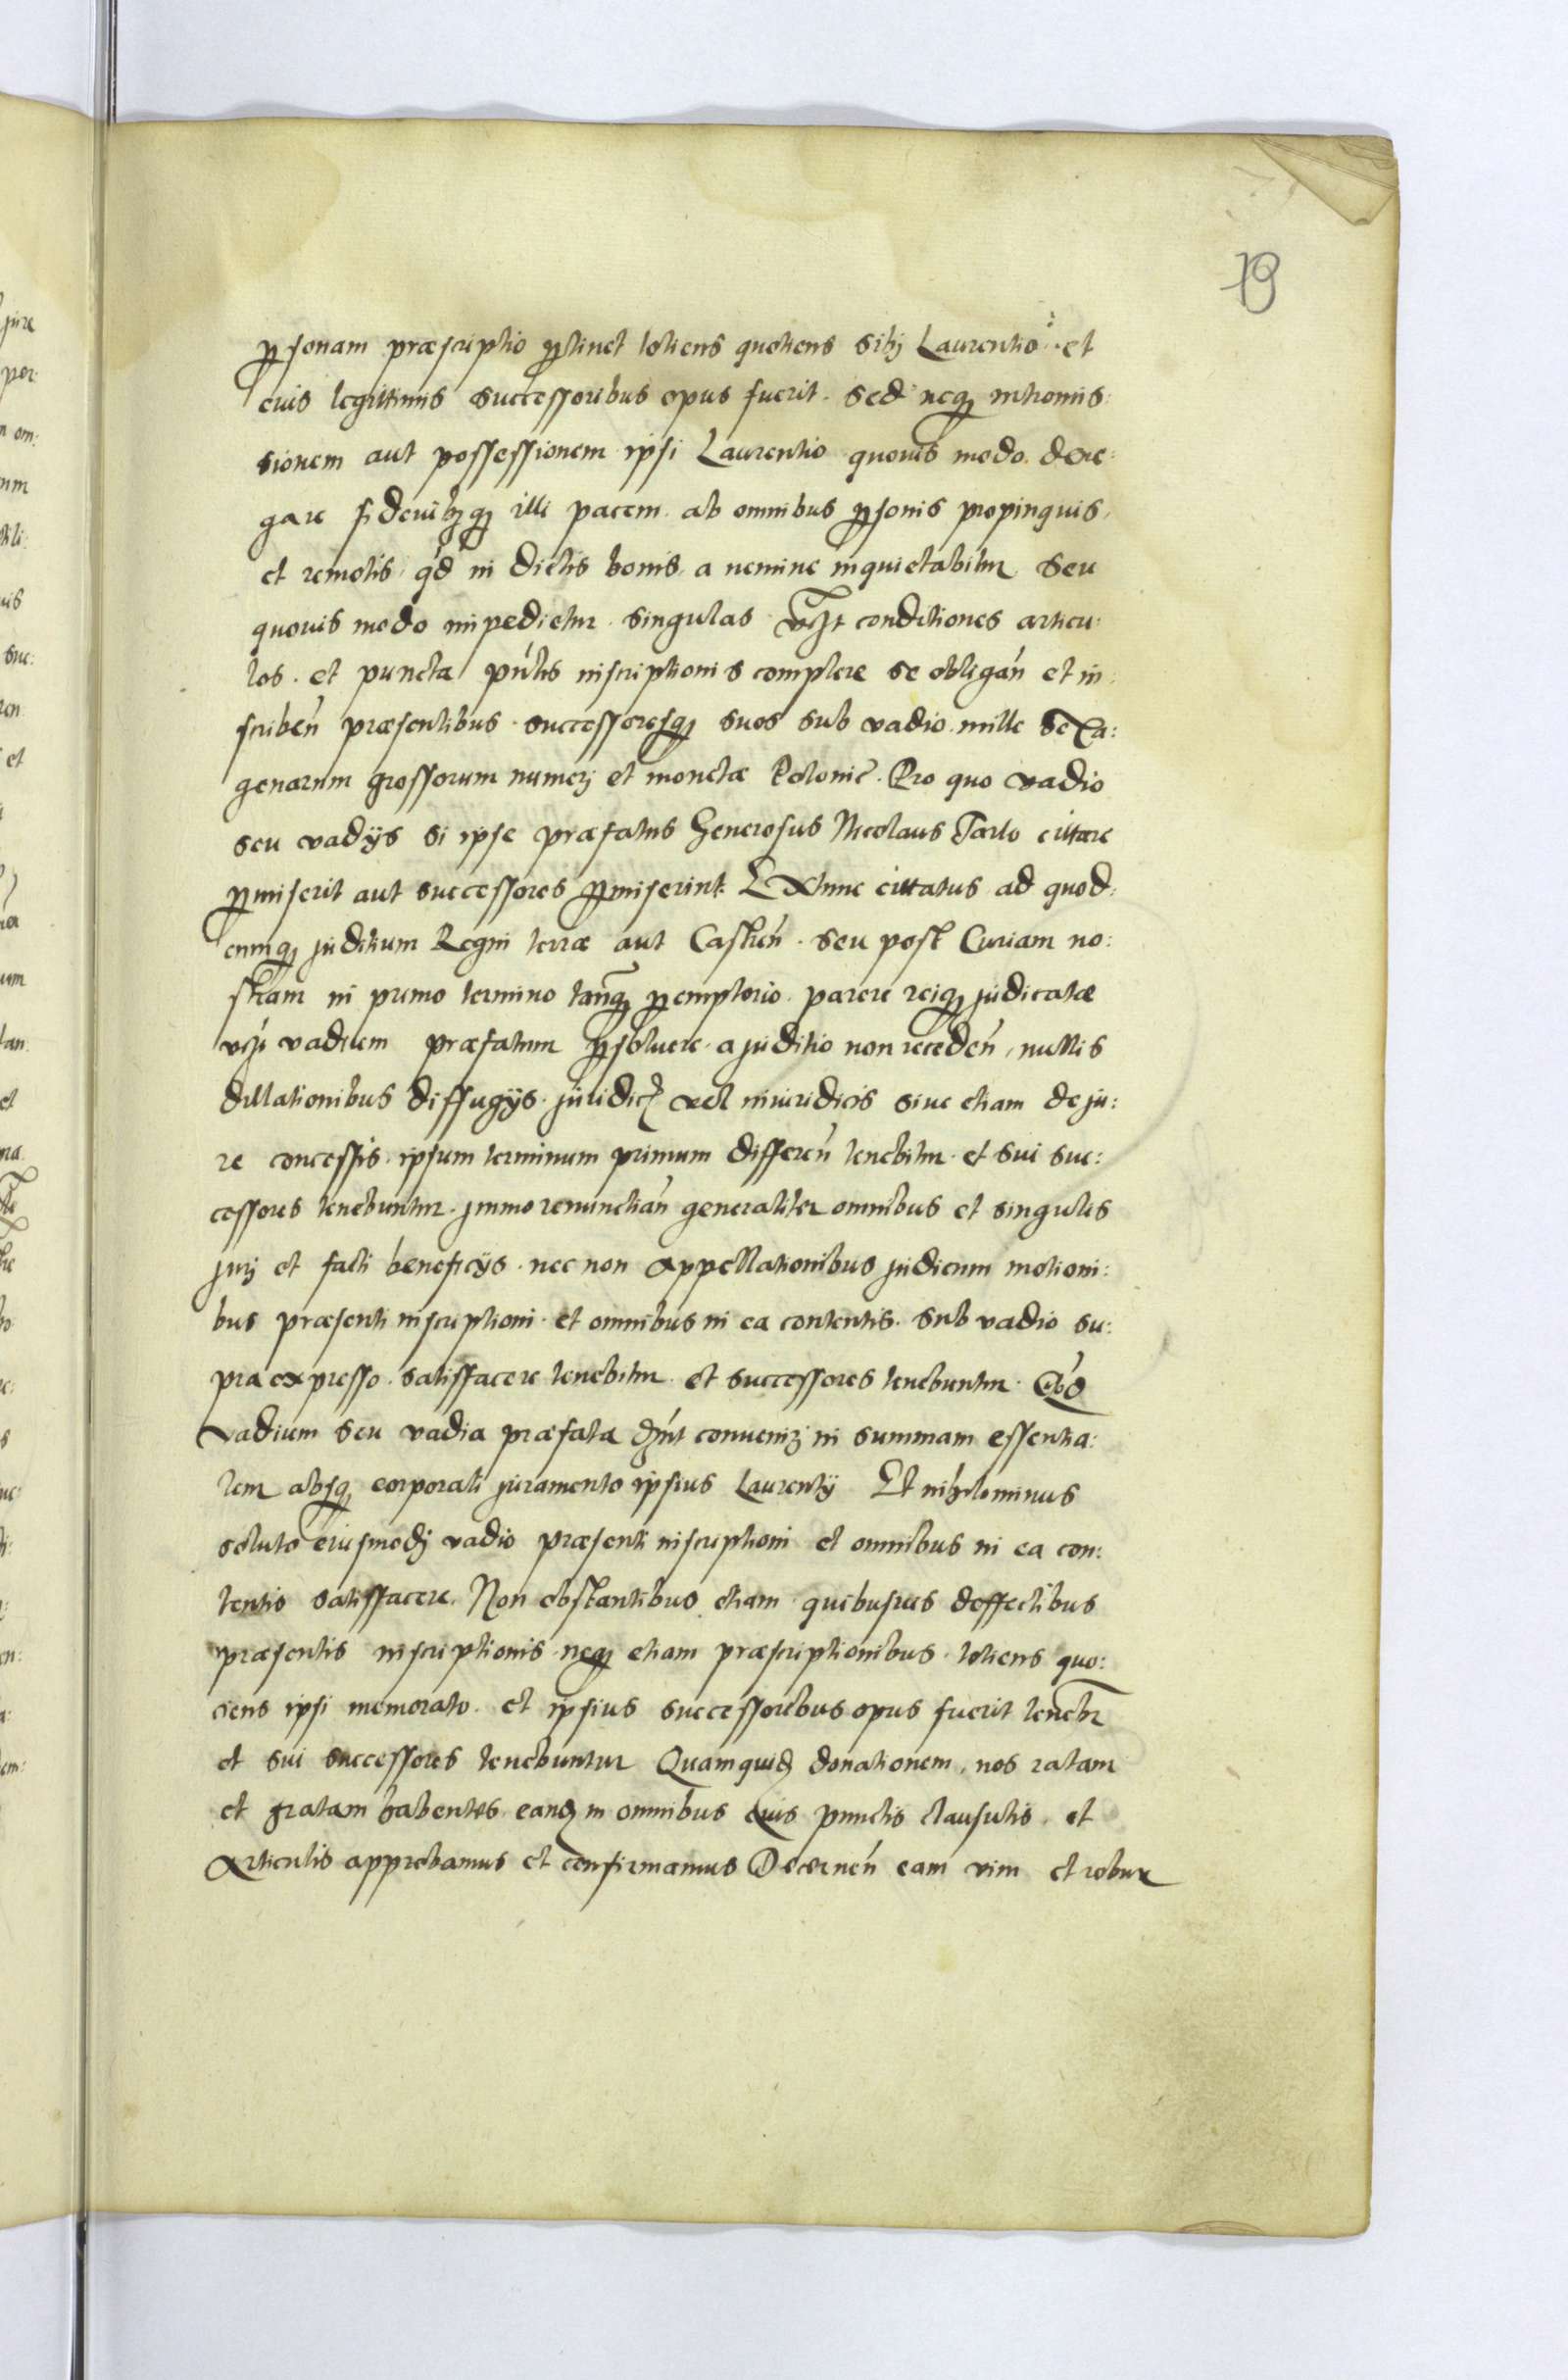 19
ꝑsonam præscriptio ꝑtinet totiens quotiens sibj Laurentio et
eius legittimis successoribus opus fuerit. Sed neqꝫ intromis:
sionem aut possessionem ipsi Laurentio quouis modo dene:
gare illi pacem ab omnibus ꝑsonis propinquis
et remotis qd in dictis bonis a nemine inquietabitur seu
quouis modo impedietur. singulas conditiones articu:
los. et puncta pntis inscriptionis complere se obligan et in:
scriben præsentibus. successoresqꝫ suos sub vadio mille sexa:
genarum grossorum numerj et monetæ Polonie. Pro quo vadio
seu vadijs si ipse præfatus Generosus Nicolaus Tarlo cittare
ꝑmiserit aut successores ꝑmiserint. Extunc cittatus ad quod:
cunqꝫ juditium Regni terræ aut Castren. seu post Curiam no:
stram in primo termino tanqꝫ ꝑemptorio. parere reiqꝫ judicatæ
vadium præfatum ꝑsoluere. a juditio non receden, nullis
dillationibus diffugijs. vel iniuridicis siue etiam de ju:
re concessis. ipsum terminum primum differen tenebitur. et sui suc:
cessores tenebuntur. jmmo renunctian generaliter omnibus et singulis
jurj et facti beneficijs. nec non appellationibus judicum motioni:
bus præsenti inscriptioni. et omnibus in ea contentis. sub vadio su:
pra expresso. satisffacere tenebitur. et successores tenebuntur. Qd
vadium seu vadia præfata in summam essentia:
lem absqꝫ corporali juramento ipsius Laurentij Et nihilominus
soluto eiusmodj vadio præsenti inscriptioni et omnibus in ea con:
tentis satisffacere. Non obstantibus etiam quibusuis deffectibus
præsentis inscriptionis. neqꝫ etiam præscriptionibus. totiens quo:
ciens ipsi memorato. et ipsius successoribus opus fuerit tenebr
et sui successores tenebuntur Quamquidꝫ donationem, nos ratam
et gratam habentes eandꝫ in omnibus suis punctis clausulis. et
Articulis approbamus et confirmamus Decernen eam vim et robur